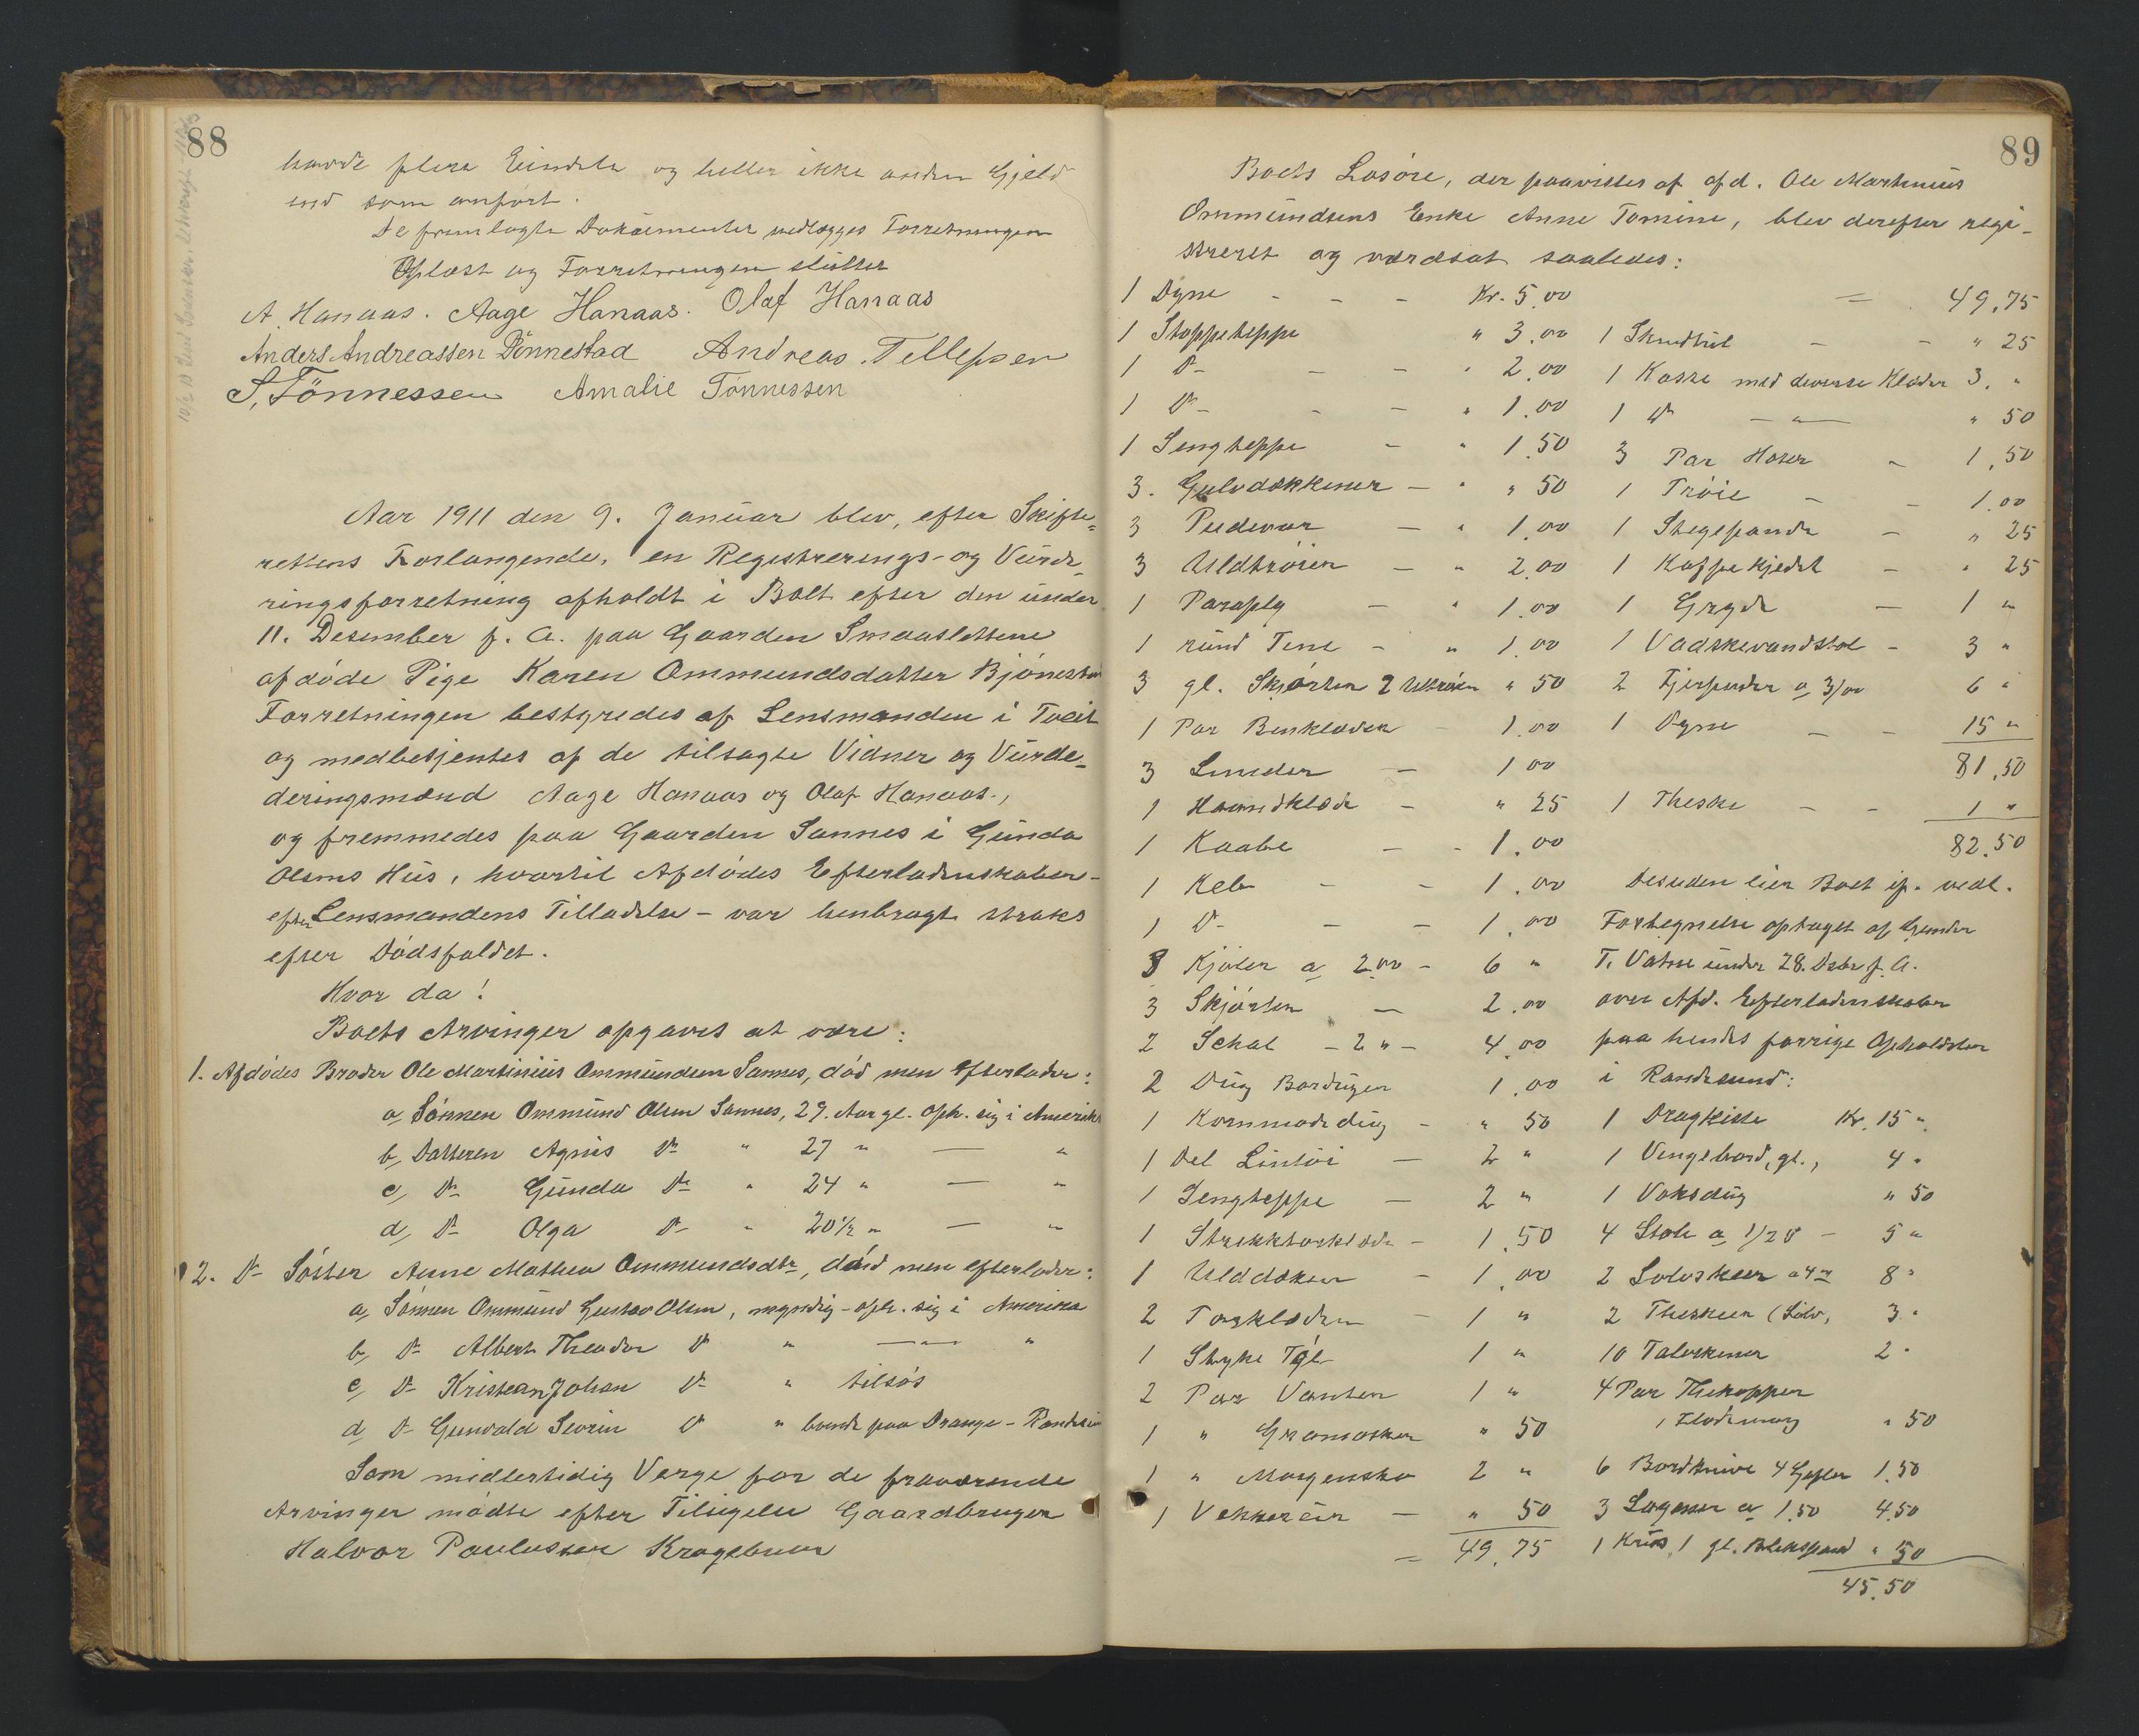 88
havde flere Eiendele og heller ikke anden Gjeld
end som anført.
De fremlagte Dokumenter vedlægges Forretningen
Oplæst og Forretningen sluttet
A. Hanaas. Aage Hanaas. Olaf Hanaas
Anders Andreassen Dønnestad Andreas Tellefsen
S. Tønnessen Amalie Tønnessen
Aar 1911 den 9. Januar blev, efter Skifte-
rettens Forlangende, en Registrerings- og Vurde-
ringsforretning afholdt i Boet efter den under
11. Desember f. A. paa Gaarden Smaaslettene
afdøde Pige Karen Ommundsdatter Bjønestad
Forretningen bestyredes af Lensmanden i Tveit
og medbetjentes af de tilsagte Vidner og Vurde-
deringsmænd Aage Hanaas og Olaf Hanaas.,
og fremmedes paa Gaarden Sannes i Gunda
Olsens Hus, hvortil Afdødes Efterladenskaber -
efter Lensmandens Tilladelse - var henbragt straks
efter Dødsfaldet.
Hvor da!
Boets Arvinger opgaves at være:
1. Afdødes Broder Ole Martinius Ommundsen Sannes, død men efterlader:
a, Sønnen Ommund Olsen Sannes, 29. Aar gl. oph. sig i Amerika
b, Datteren Agnes Do " 27 " — "
c, Do Gunda Do " 24 " — "
d, Do Olga Do " 20½ " — "
2. Do Søster Anne Mathea Ommundsdtr, død men efterlader:
a, Sønnen Ommund Gustav Olsen, myndig - oph. sig i Amerika
b, Do Albert Theodor Do " — " — "
c, Do Kristian Johan Do " tilsøs
d, Do Gunvald Severin Do " boende paa Drange - Randesund
Som midlertidig Verge for de fraværende
Arvinger mødte efter Tilsigelse Gaardbruger
Halvor Paulussen Kragebuen
89
Boets Løsøre, der paavistes af afd. Ole Martinius
Ommundsens Enke Anne Tomine, blev derefter regi-
streret og værdsat saaledes:
1 Dyne - - - Kr. 5.00
1 Stoppeteppe " 3.00
1 Do - - - " 2.00
1 Do - - " 1.00
1 Sengteppe - " 1.50
3. Gulvdækkener - " " 50
3 Pudevar - " 1.00
3 Uldtrøien - " 2.00
1 Paraply - " 1.00
1 rund Tine - " 1.00
3 gl. Skjørten 2 Uldtrøien " 50
1 Par Benklæder - 1.00
3 Linneder - 1 00
1 Haandklæde - " 25
1 Kaabe - - 1.00
1 Kole - - 1.00
1 Do - - 1.00
3 Kjoler a 2.00 - 6 "
3 Skjørten - 2.00
2 Schal - 2 " - 4.00
2 Dug Bordugen 1.00
1 Kommodedug - " 50
1 Del Lintøi - 2 "
1 Sengteppe - 2 "
1 Strektørklæde - 1.50
1 Ulddækken - 1.00
2 Tørklæder - 1 "
1 Stykke Tøi 1 "
2 Par Vanter 1 "
1 " " 50
1 " Morgensko 2 "
1 Vækkerur - " 50
= 49.75
= 49.75
1 - - " 25
1 Kasse med diverse Klæder 3. "
1 Do - " — " 50
3 Par Hoser - 1.50
1 Trøie - - 1.00
1 Stegepande - " 25
1 Kaffekjedel - " 25
1 Gryde - 1 "
1 Vadskevandstol - 3 "
2 Fjerpuder a 3/00 6 "
1 Dyne - - 15 "
81.50
1 Theske - - 1 "
82.50
Desuden eier Boet if. vedl.
Fortegnelse optaget af Gunder
T. Vatne under 28. Dsbr f. A.
over Afd. Efterladenskaber
paa hendes forrige Opholdsted
i Randesund:
1 Dragkiste Kr. 15 "
1 Vingebord, gl., 4 "
1 Voksdug " 50
4 Stole a 1/20 - 5 "
2 Sølvskeer a 4 00 8 "
2 Theskeer (Sølv, 3 "
10 Talerkener 2 "
4 Par Thekopper
1 Flødemug " 50
6 Bordknive 4 Gafler 1.50
3 Lagener a 1.50 4.50
1 Krus 1 gl. Blikspand " 50
45.50